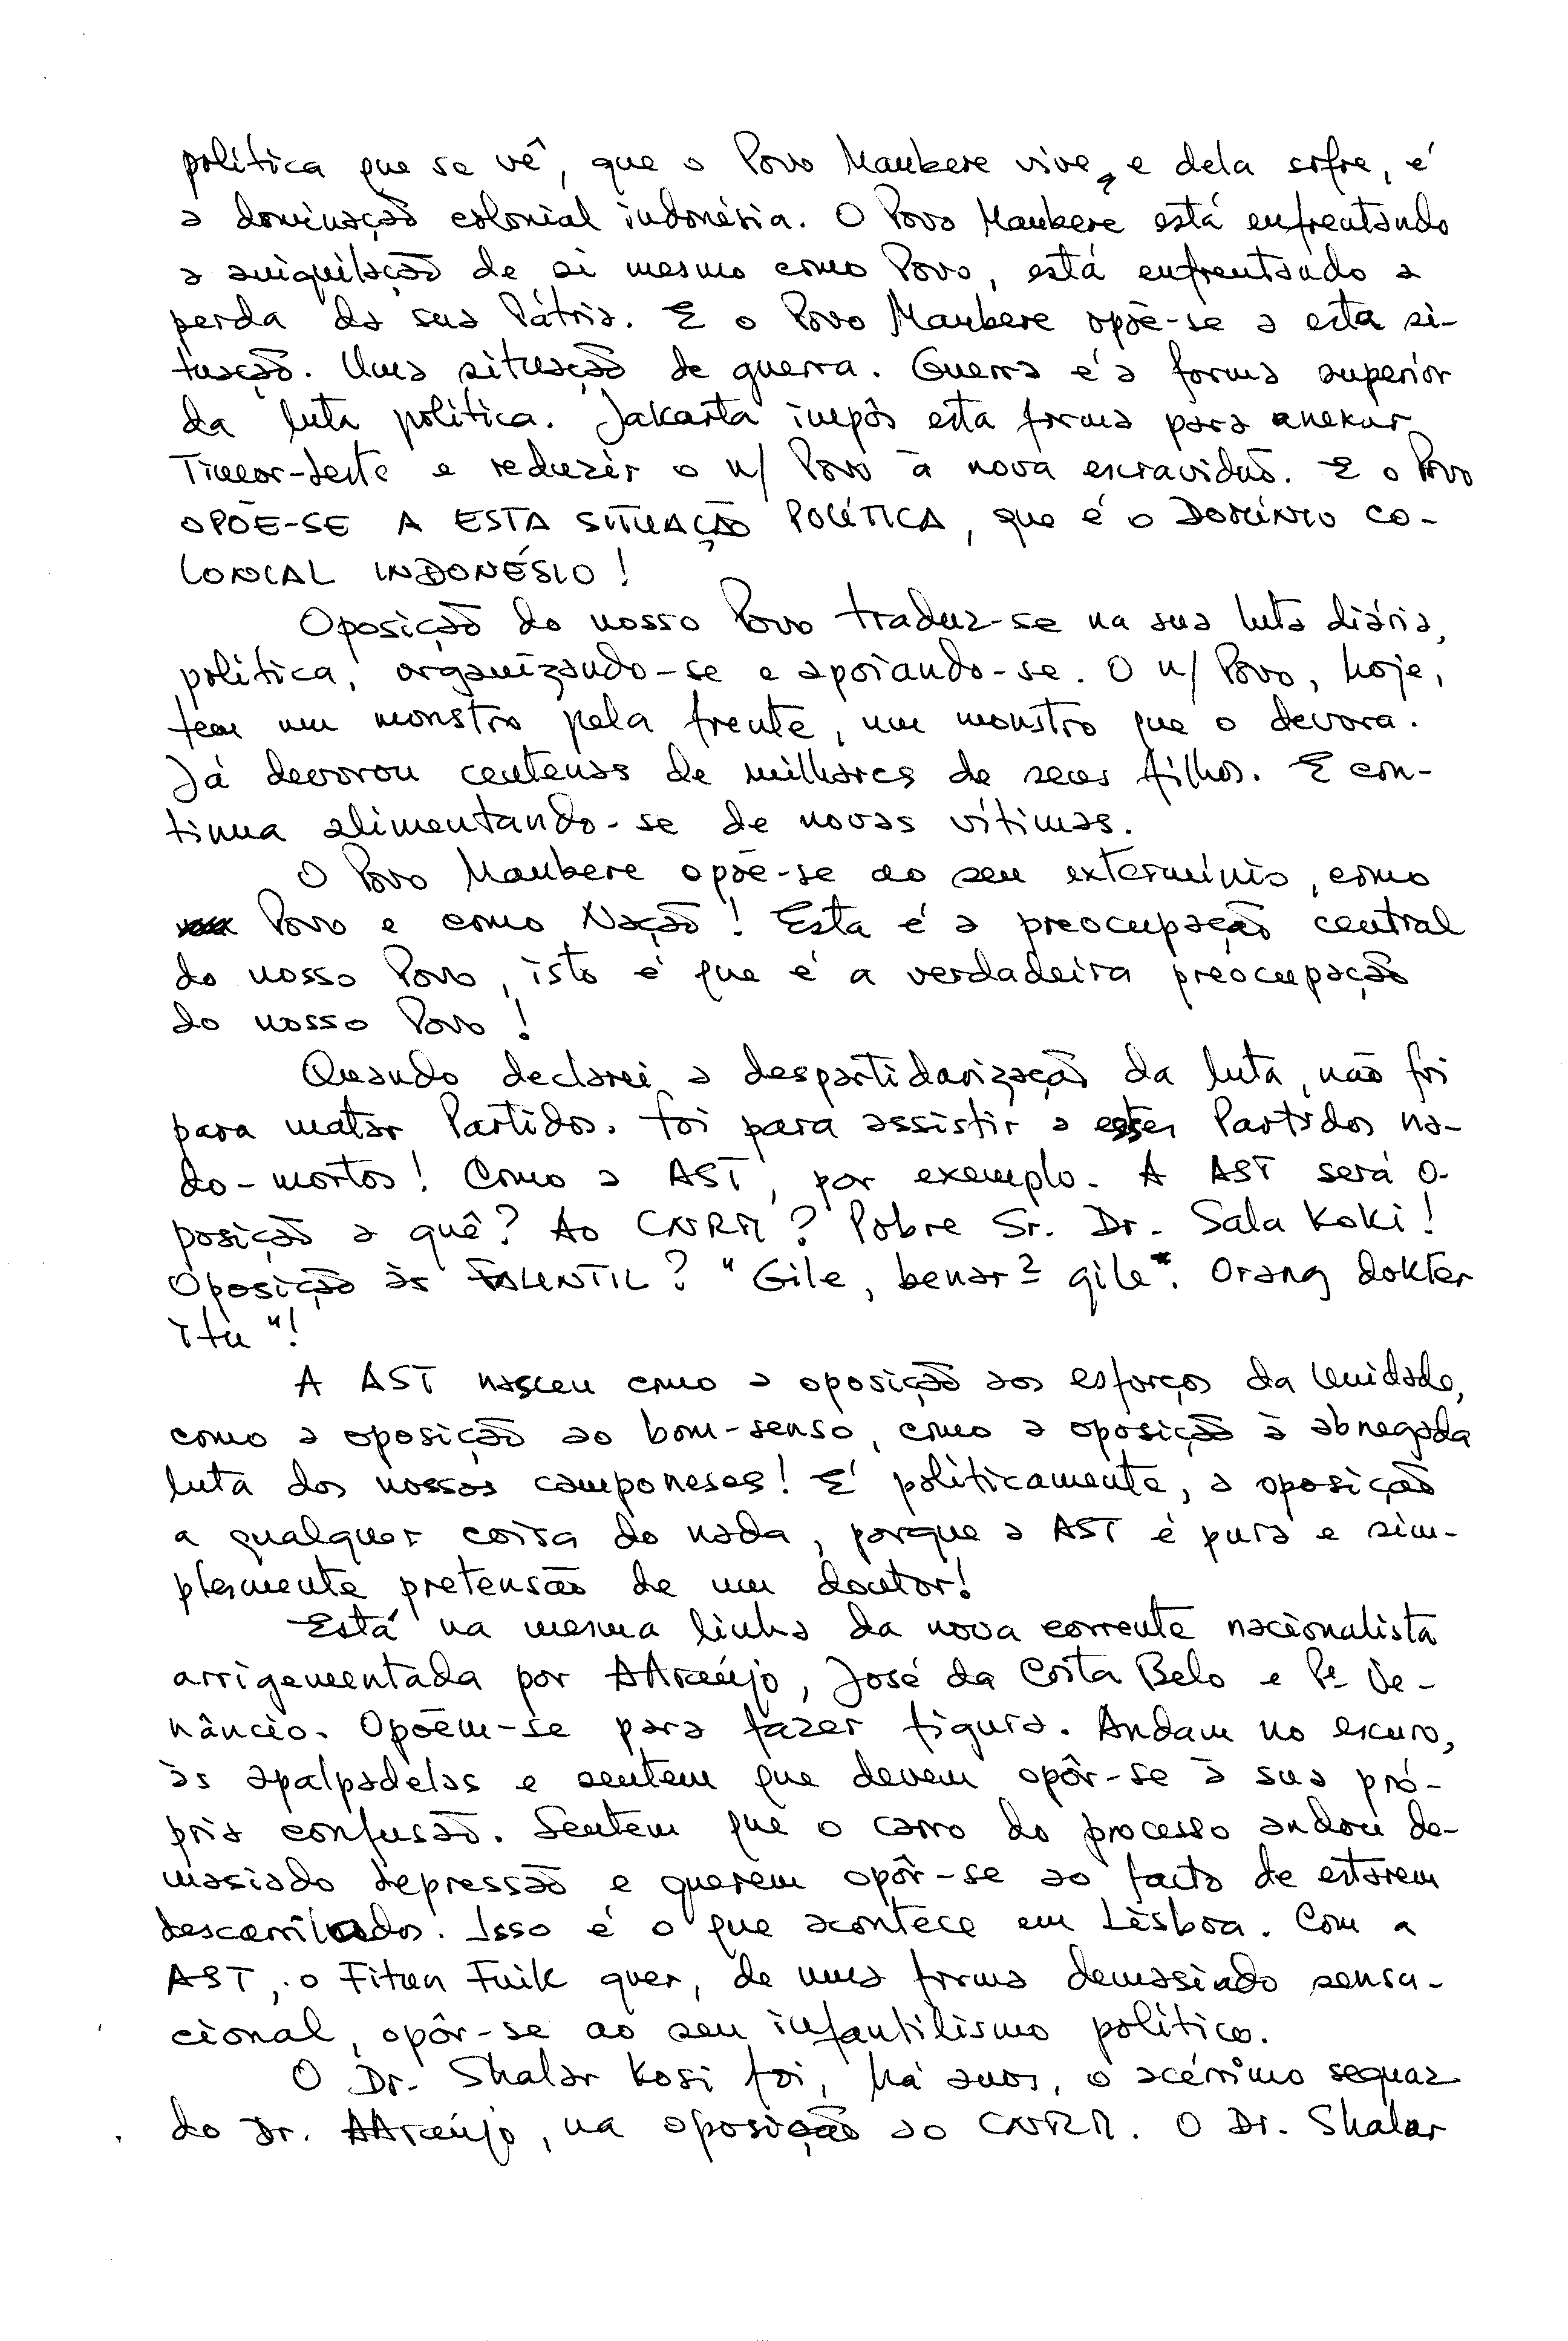 política que se vê, que o Povo Maubere vive, e dela sofre, é
a dominação colonial indonésia. O Povo Maubere está enfrentando
a aniquilação de si mesmo como Povo, está enfrentando a
perda da sua Pátria. E o Povo Maubere opõe-se a esta si-
tuação. Uma situação de guerra. Guerra é a forma superior
da luta política. Jakarta impôs esta forma para anexar
Timor-Leste e reduzir o n/ Povo à nova escravidão. E o Povo
OPÕE-SE A ESTA SITUAÇÃO POLÍTICA, que é o DOMÍNIO CO-
LONIAL INDONÉSIO!
Oposição do nosso Povo traduz-se na sua luta diária,
política, organizando-se e apoiando-se. O n/ Povo, hoje,
tem um monstro pela frente, um monstro que o devora.
Já devorou centenas de milhares de seus filhos. E con-
tinua alimentando-se de novas vítimas.
O Povo Maubere opõe-se ao seu extermínio, como
Povo e como Nação! Esta é a preocupação central
do nosso Povo, isto é que é a verdadeira preocupação
do nosso Povo!
Quando declarei a despartidarização da luta, não foi
para matar Partidos. Foi para assistir a estes Partidos na-
do-mortos! Como a AST, por exemplo. A AST será o-
posição a quê? Ao CNRM? Pobre Sr. Dr. Sala Koki!
Oposição às FALINTIL? "Gile, benar2 gile". Orang dokter
itu"!
A AST nasceu como a oposição aos esforços da Unidade,
como a oposição ao bom-senso, como a oposição à abnegada
luta dos nossos camponeses! É politicamente, a oposição
a qualquer coisa do nada, porque a AST é pura e sim-
plesmente pretensão de um doutor!
Está na mesma linha da nova corrente nacionalista
arrigementada por AAraújo, José da Costa Belo e Pe Ve-
nâncio. Opõem-se para fazer figura. Andam no escuro,
às apalpadelas e sentem que devem opôr-se à sua pró-
pria confusão. Sentem que o carro do processo andou de-
masiado depressão e querem opôr-se ao facto de estarem
descarrilados. Isso é o que acontece em Lisboa. Com a
AST, o Fitun Fuik quer, de uma forma demasiado sensa-
cional, opôr-se ao seu infantilismo político.
O Dr. Shalar Kosi foi, há anos, o acérrimo sequaz
do Dr. AAraújo, na oposição ao CNRM. O Dr. Shalar